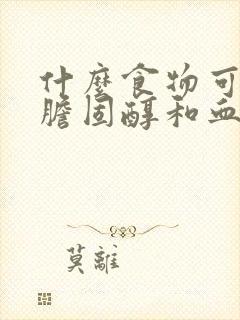 什麼食物可
膽固醇和血
莫離